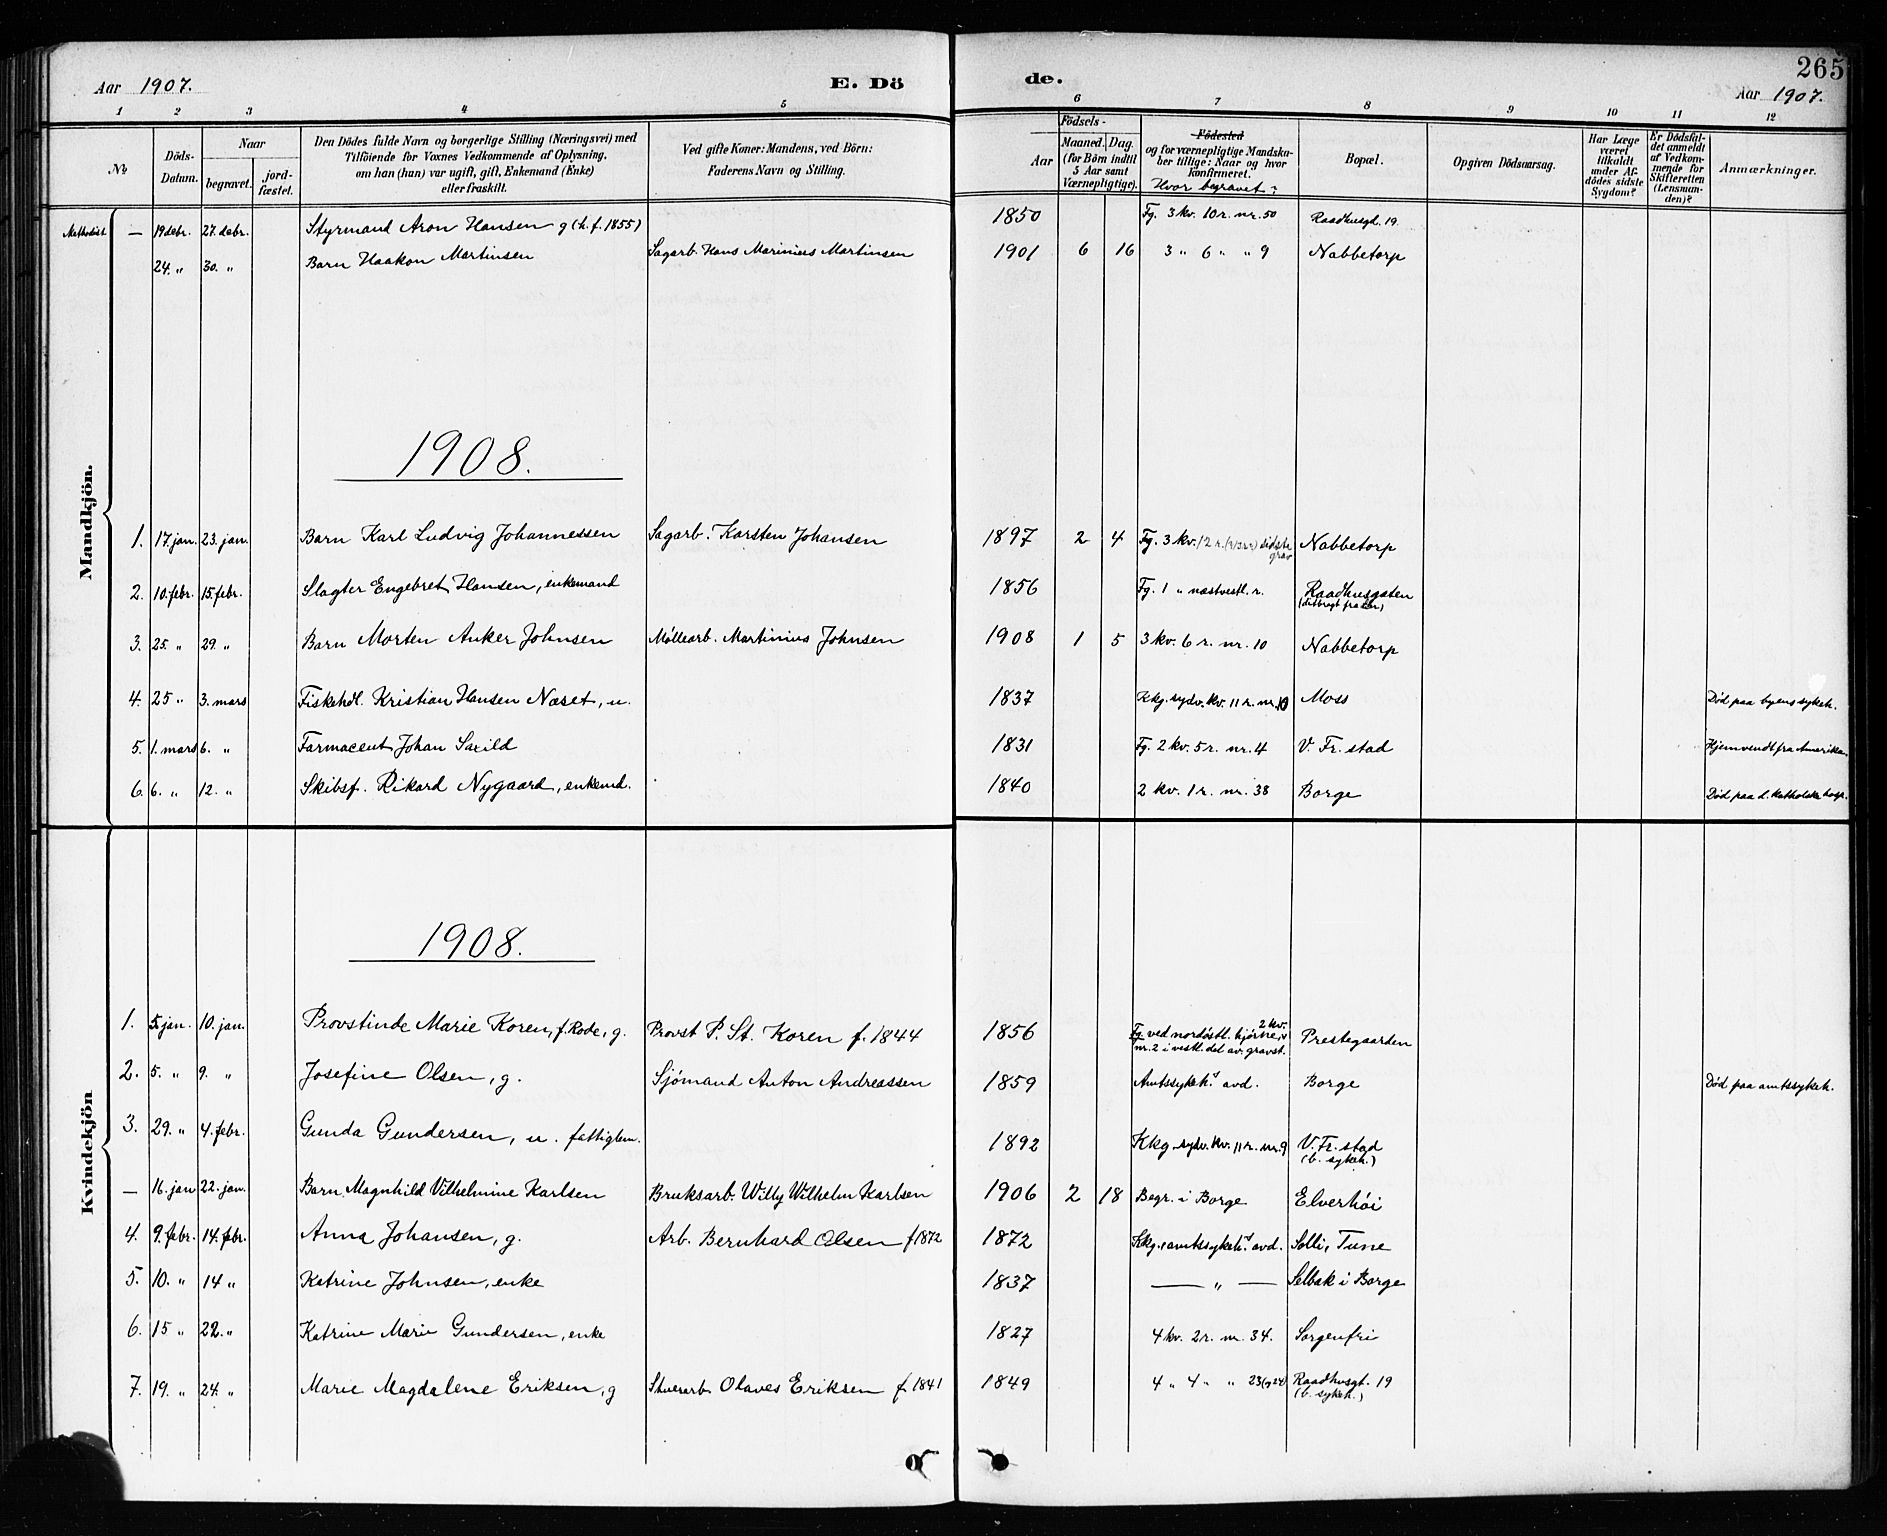 265
Aar 1907. E. Dö de. Aar 1907.
1 2 3 4 5 6 7 8 9 10 11 12
No Döds-Datum. Naar begravet. jord-fæstet. Den Dödes fulde Navn og borgerlige Stilling (Næringsvei) med Tilföiende for Voxnes Vedkommende af Oplysning, om han (hun) var ugift, gift, Enkemand (Enke) eller fraskilt. Ved gifte Koner: Mandens, ved Börn: Faderens Navn og Stilling. Födsels- Aar Maaned. Dag. (for Börn indtil 5 Aar samt Værnepligtige). Födested og for værnepligtige Mandska-ber tillige: Naar og hvor konfirmeret. Hvor begravet? Bopæl. Opgiven Dödsaarsag. Har Læge været tilkaldt under Af-dödes sidste Sygdom? Er Dödsfal-det anmeldt af Vedkom-mende for Skifteretten (Lensman-den)? Anmærkninger.
Mandkjön.
Methodist. — 19 debr. 27. debr. Styrmand Aron Hansen g (h. f. 1855) 1850 Fg. 3 kv. 10 r. nr. 50 Raadhusgt. 19
24. „ 30. „ Barn Haakon Martinsen Sagarb. Hans Marinius Martinsen 1901 6 16 3 „ 6 „ „ 9 Nabbetorp
1908.
1. 17. jan. 23. jan. Barn Karl Ludvig Johannessen Sagarb. Karsten Johansen 1897 2 4 Fg. 3 kv. 12 r. sidste grav Nabbetorp
2. 10. febr. 15. febr. Slagter Engebret Hansen, enkemand 1856 Fg. 1 „ næstvestl. r. Raadhusgaten
3. 25. „ 29. „ Barn Morten Anker Johnsen Møllearb. Martinius Johnsen 1908 1 5 3 kv. 6 r. nr. 10 Nabbetorp
4. 25 „ 3. mars Fiskehdl. Kristian Hansen Næset, u. 1837 Kkg. sydv. kv. 11 r. nr. 10 Moss Død paa byens sykeh.
5. 1. mars 6. „ Farmaceut Johan Saxild 1831 Fg. 2 kv. 5 r. nr. 4 V. Fr. stad Hjemvendt fra Amerika.
6. 6. „ 12. „ Skibsf. Rikard Nygaard, enkemd. 1840 2 kv. 1 r. nr. 38 Borge Død paa d. katholske hosp.
Kvindekjön
1908.
1. 5. jan. 10. jan. Provstinde Marie Koren, f. Rode, g. Provst P. St. Koren f. 1844 1856 Fg. ved nordöstl. hjörne, 2 kv. nr. 2 i vestl. del av. gravst. Prestegaarden
2. 5. „ 9. „ Josefine Olsen, g. Sjömand Anton Andreassen 1859 Amtssykeh.s avd. Borge Död paa amtssykeh.
3. 29. „ 4. febr. Gunda Gundersen, u. fattiglem. 1892 Kkg. sydv. kv. 11 r. nr. 9 V. Fr. stad (b. sykeh.)
— 16. jan 22. jan. Barn Magnhild Vilhelmine Karlsen Bruksarb. Willy Wilhelm Karlsen 1906 2 18 Begr. i Borge Elverhöi
4. 9. febr. 14. febr. Anna Johansen, g. Arb. Bernhard Olsen f 1872 1872 Kkg., amtssykeh.s avd. Solli, Tune
5. 10. „ 14 „ Katrine Johnsen, enke 1837 — „ — Selbak i Borge
6. 15 „ 22. „ Katrine Marie Gundersen, enke 1827 4 kv. 2 r. nr. 34. Sorgenfri
7. 19. „ 24. „ Marie Magdalene Eriksen, g Skverarb. Olaves Eriksen f. 1841 1849 4 „ 4 „ „ 23 (g 24) Raadhusgt. 19 (b. sykeh.)